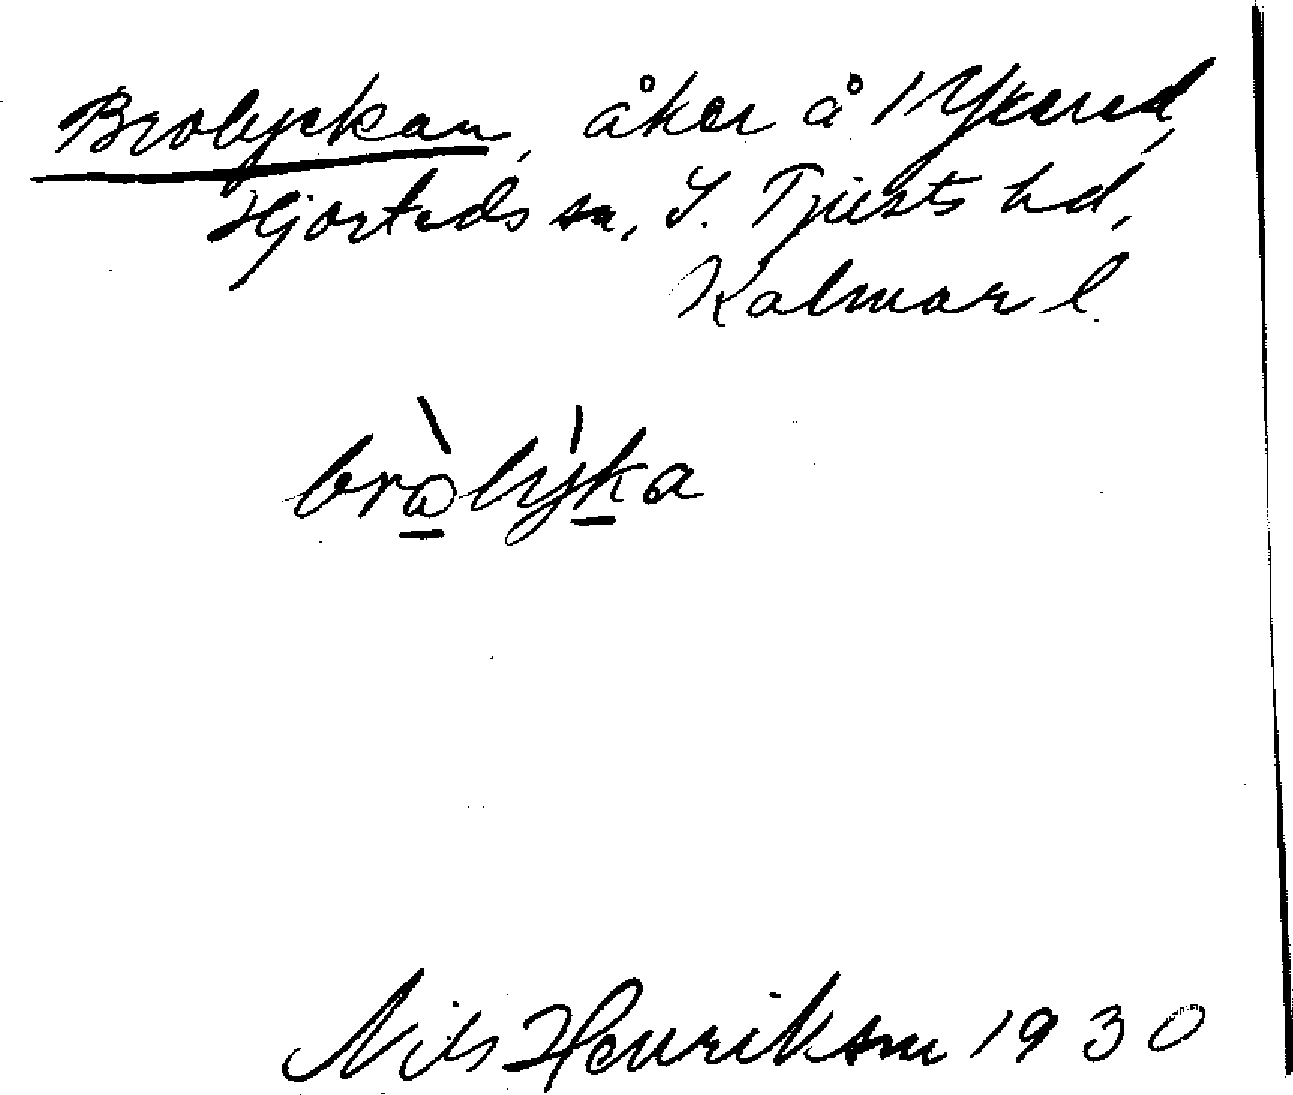 Brolyckan, åker å 1 Ykered,
Hjorteds sn, S. Tjusts hd,
Kalmar l.
bràlỳka
Nils Henrikson 1930